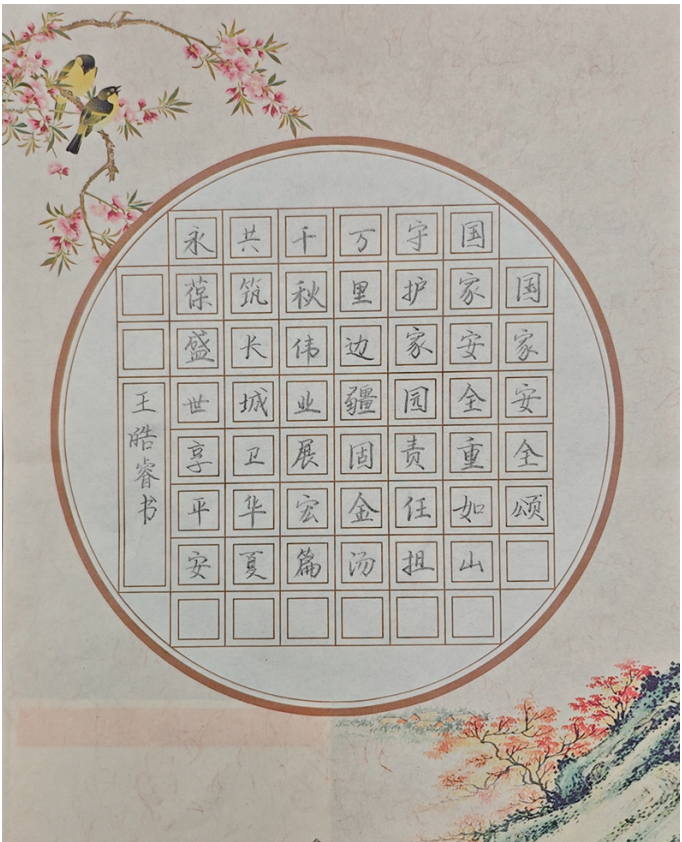 国家安全颂
国家安全重如山
守护家园责任担
万里边疆固金汤
千秋伟业展宏篇
共筑长城卫华夏
永葆盛世享平安
王皓睿书